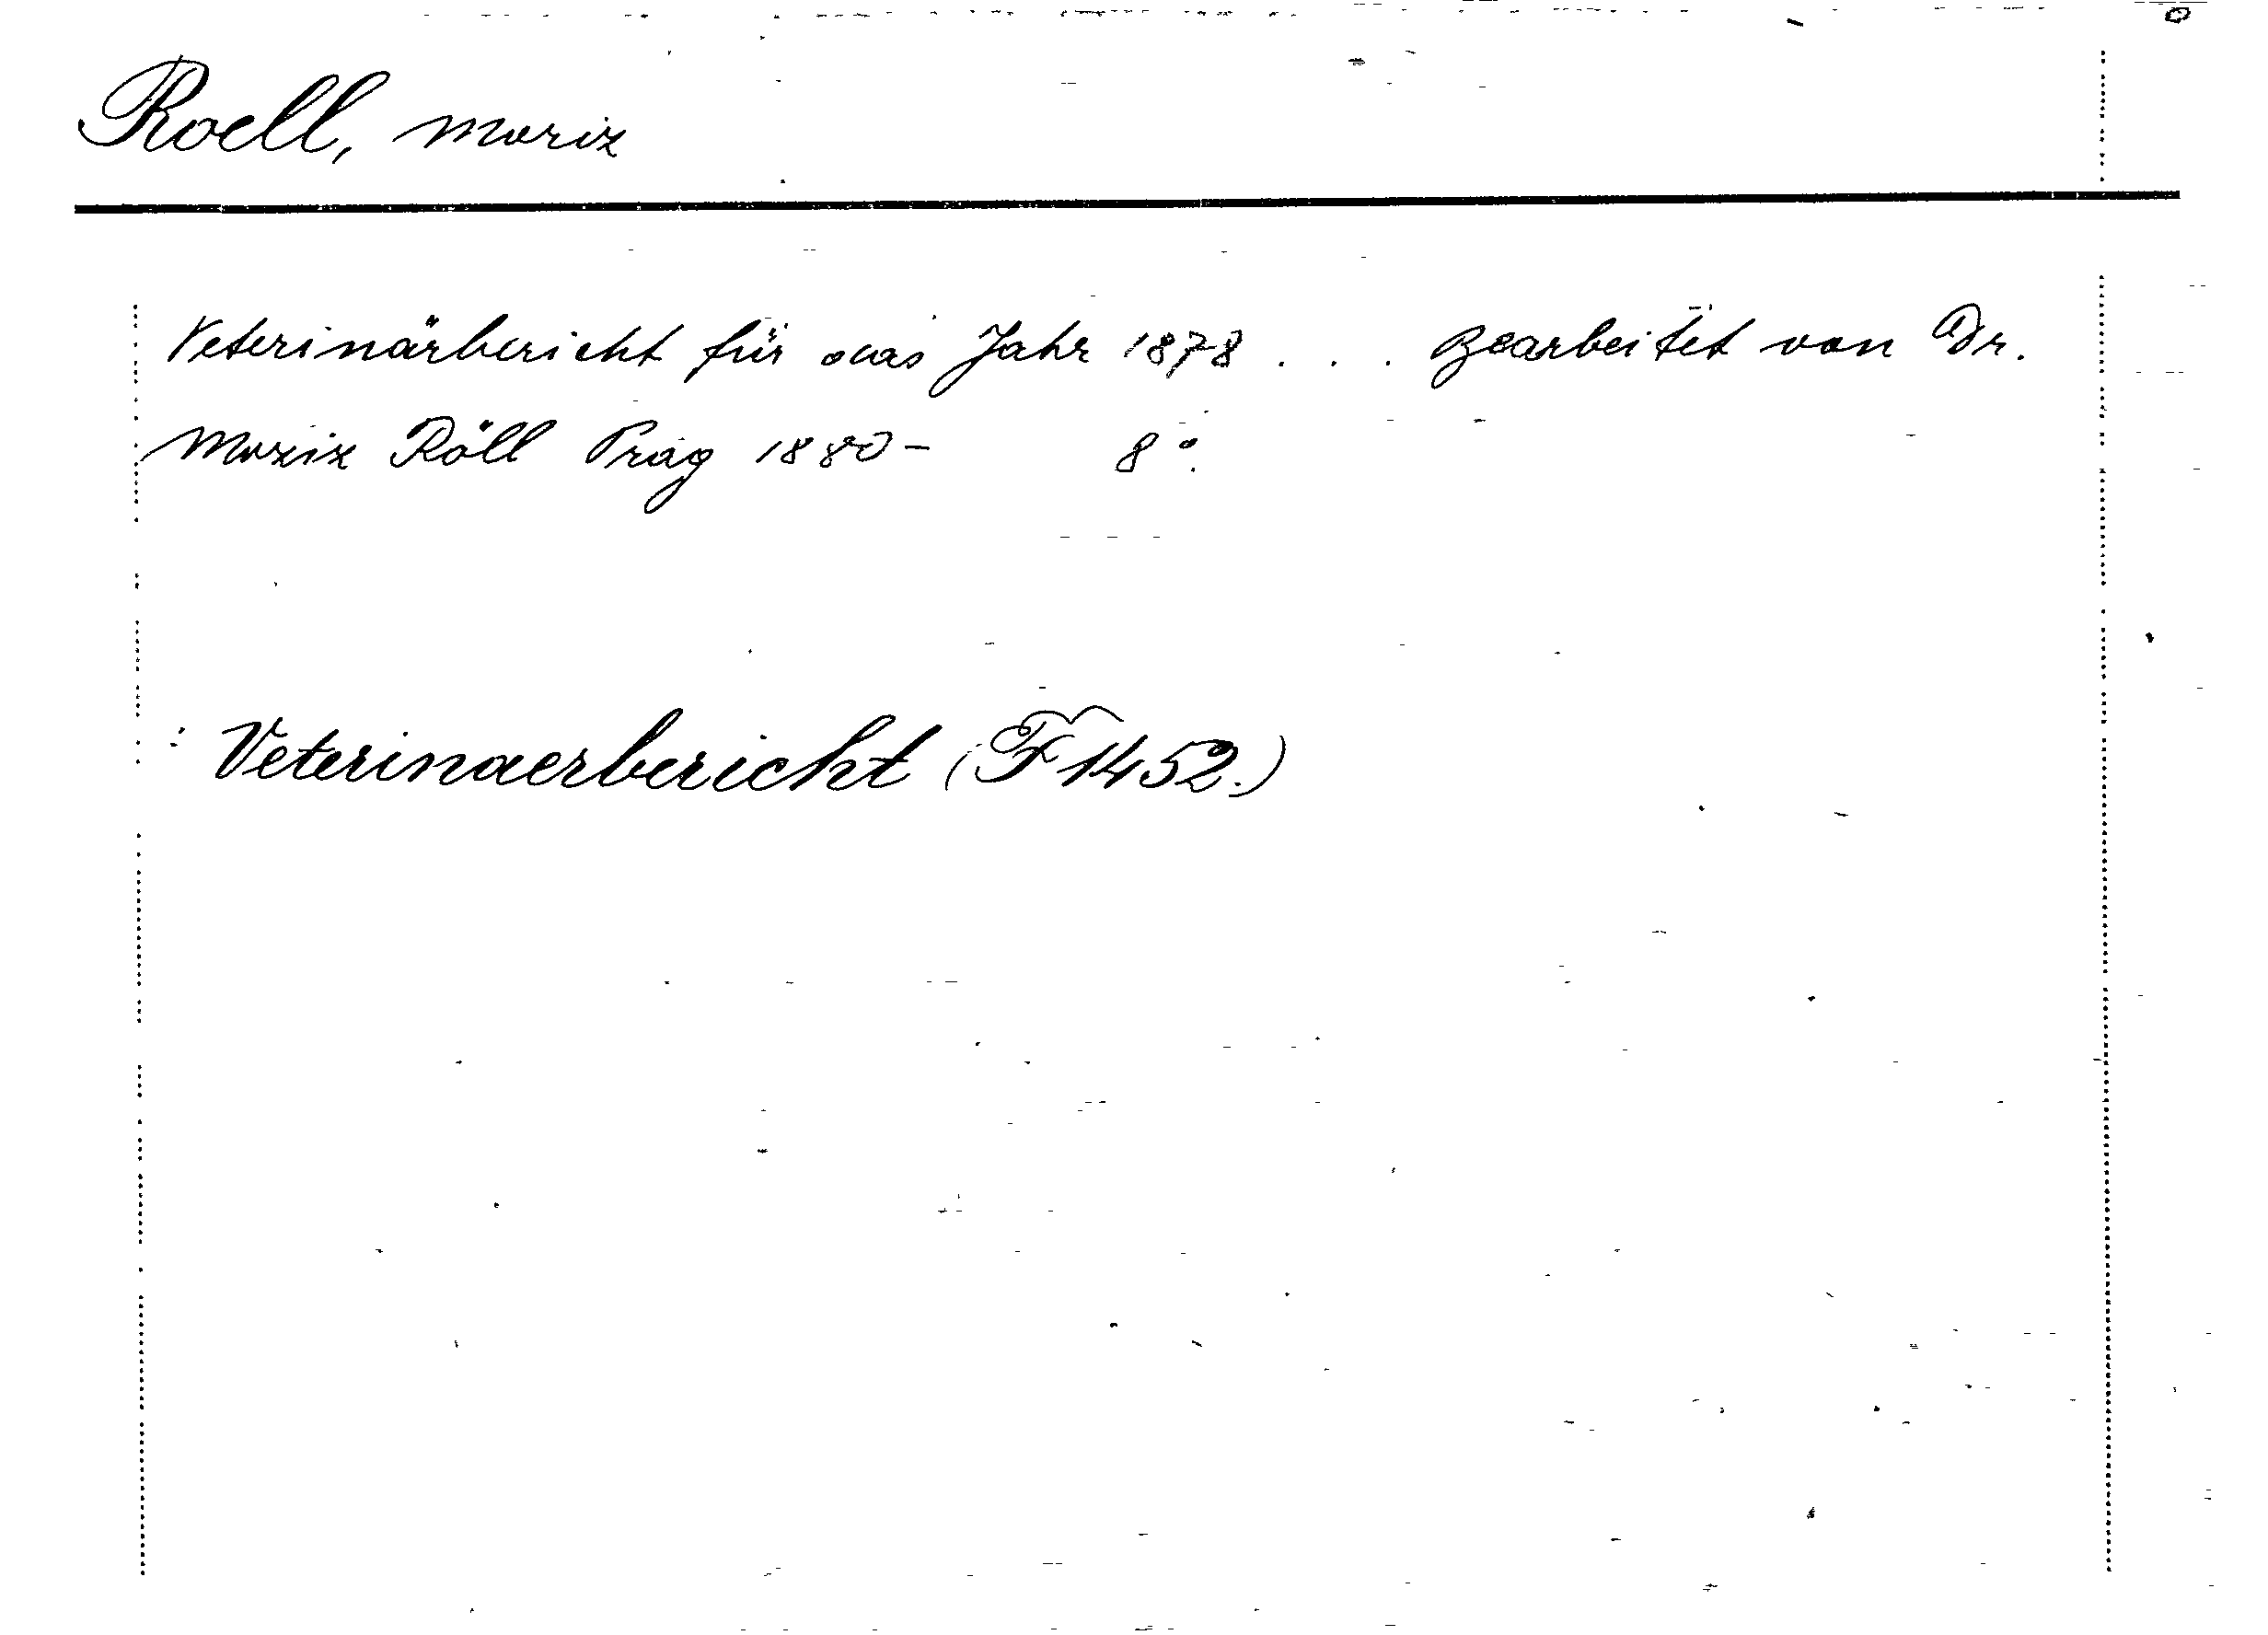 Roell, Moriz
Veterinärbericht für das Jahr 1878 . . . Bearbeitet von Dr.
Moriz Röll Prag 1880– 8°.
: Veterinaerbericht (F 1452.)